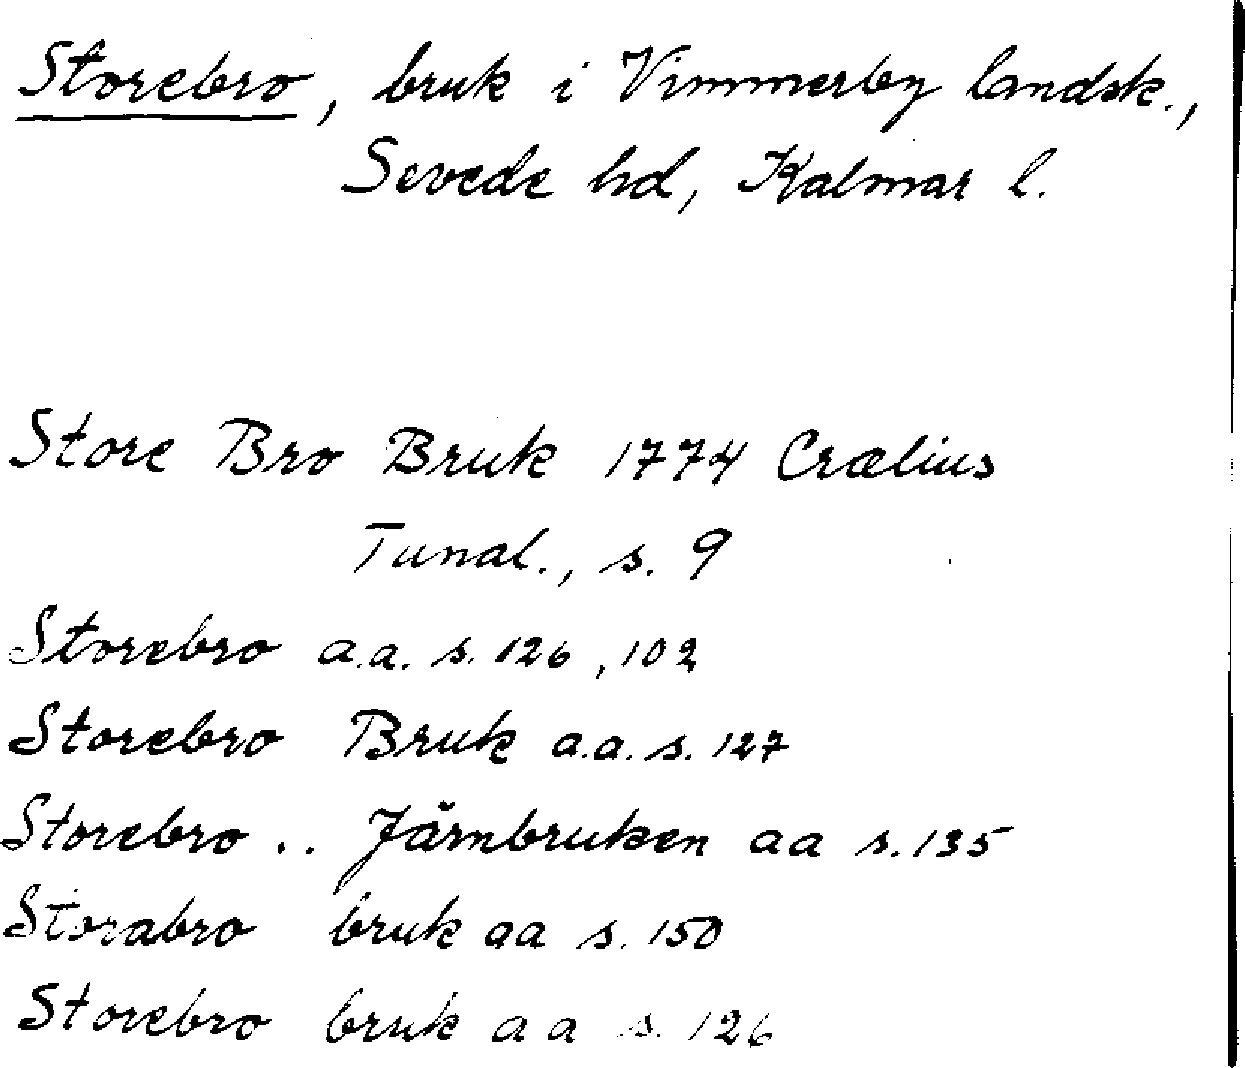 Storebro, bruk i Vimmerby landsk.,
Sevede hd, Kalmar l.
Store Bro Bruk 1774 Crælius
Tunal., s. 9
Storebro a.a. s. 126, 102
Storebro Bruk a.a. s. 127
Storebro .. Järnbruken aa s. 135
Storabro bruk aa s. 150
Storebro bruk aa s. 126